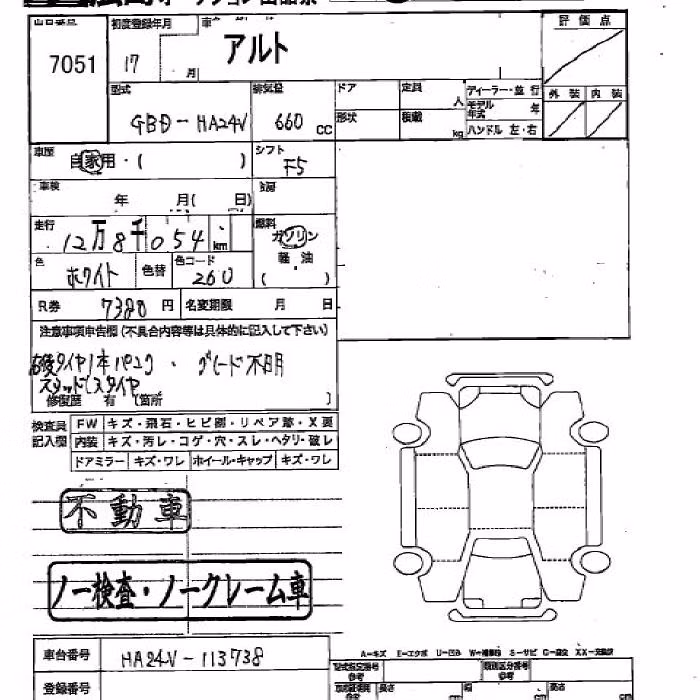 出品番号 初度登録年月 車名 評価点
7051 17 月 アルト
型式 排気量 ドア 定員 人 ディーラー・並行 外装 内装
モデル年式 年
GBD-HA24V 660 CC 形状 積載 kg ハンドル 左・右
車歴 自家用・( ) シフト F5
車検 年 月( 日)
走行 12万8千054 km 燃料 ガソリン
軽油
色 ホワイト 色替 色コード 260 ( )
R券 7380 円 名変期限 月 日
注意事項申告欄(不具合内容等は具体的に記入して下さい)
タイヤ1本パンク・グレード不明
スタッドレスタイヤ
修復歴 有 (箇所 )
検査員記入欄 FW キズ・飛石・ヒビ割・リペア跡・X要
内装 キズ・汚レ・コゲ・穴・スレ・ヘタリ・破レ
ドアミラー キズ・ワレ ホイール・キャップ キズ・ワレ
不動車
ノー検査・ノークレーム車
A=キズ E=エクボ U=凹み W=補修跡 S=サビ C=腐食 XX=交換済
車台番号 HA24V-113738 型式指定番号 参考 類別区分番号 参考
登録番号 長さ cm 幅 cm 高さ cm